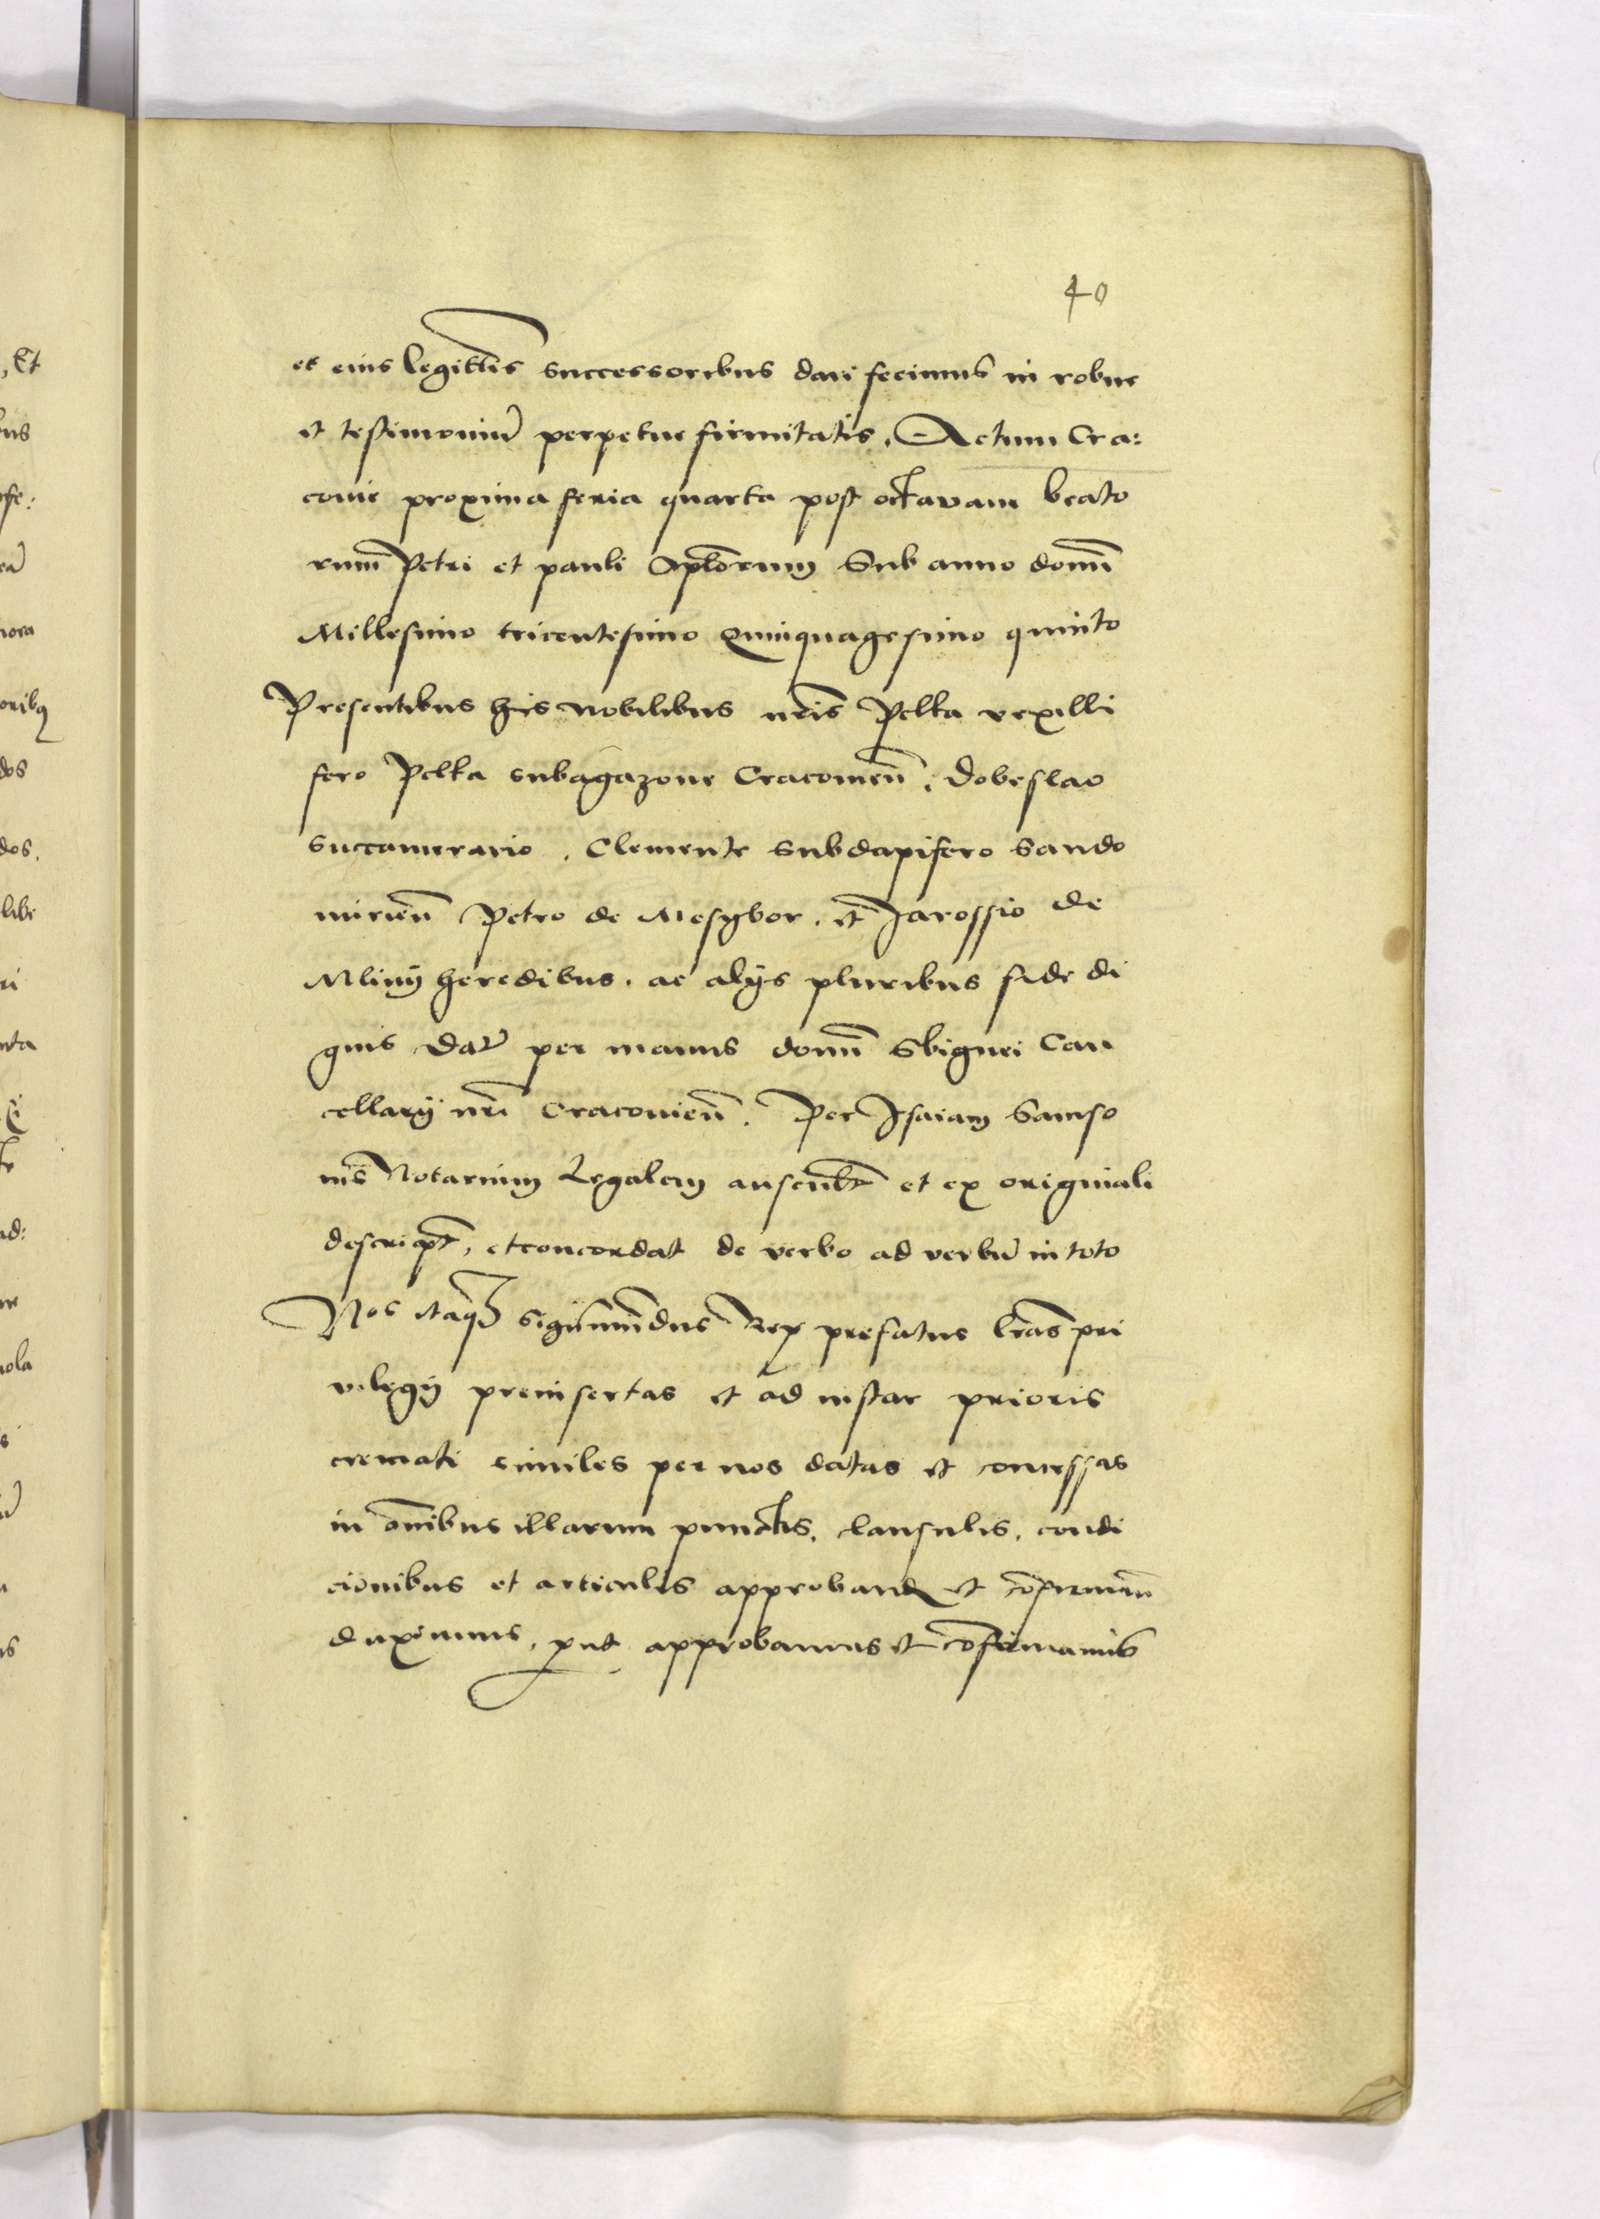 40
et eius legittīs successoribus dari fecimus in robur
et testimoniū perpetue firmitatis. Actum Cra:
covie proxima feria quarta post octavam beato
rum Petri et pauli Aplorum Sub anno domī
Millesimo tricentesimo Quinquagesimo quinto
Presentibus his nobilibus nr̄is Pelka vexilli
fero Pelka subagazone Cracovien̄. Dobeslao
succamerario. Clemente subdapifero Sando
mirien̄ Petro de Mosgbor. et Jarossio de
Mliny heredibus. ac alijs pluribus fide di
gnis Dat̄ per manus domī Sbignei Can
cellarij nr̄i Cracovien̄. Per Isaiam Samso
nis Notarium Legalem auscult̄ et ex originali
descript̄, et concordat de verbo ad verbū in toto
Nos itaqȝ Sigismundus Rex prefatus lr̄as pri
vilegij preinsertas et ad instar prioris
cremati similes per nos datas et concessas
in om̄ibus illarum punctis, clausulis, condi
cionibus et articulis approband et cōfirman̄
duximus, put approbamus et cōfirmamus
, Et